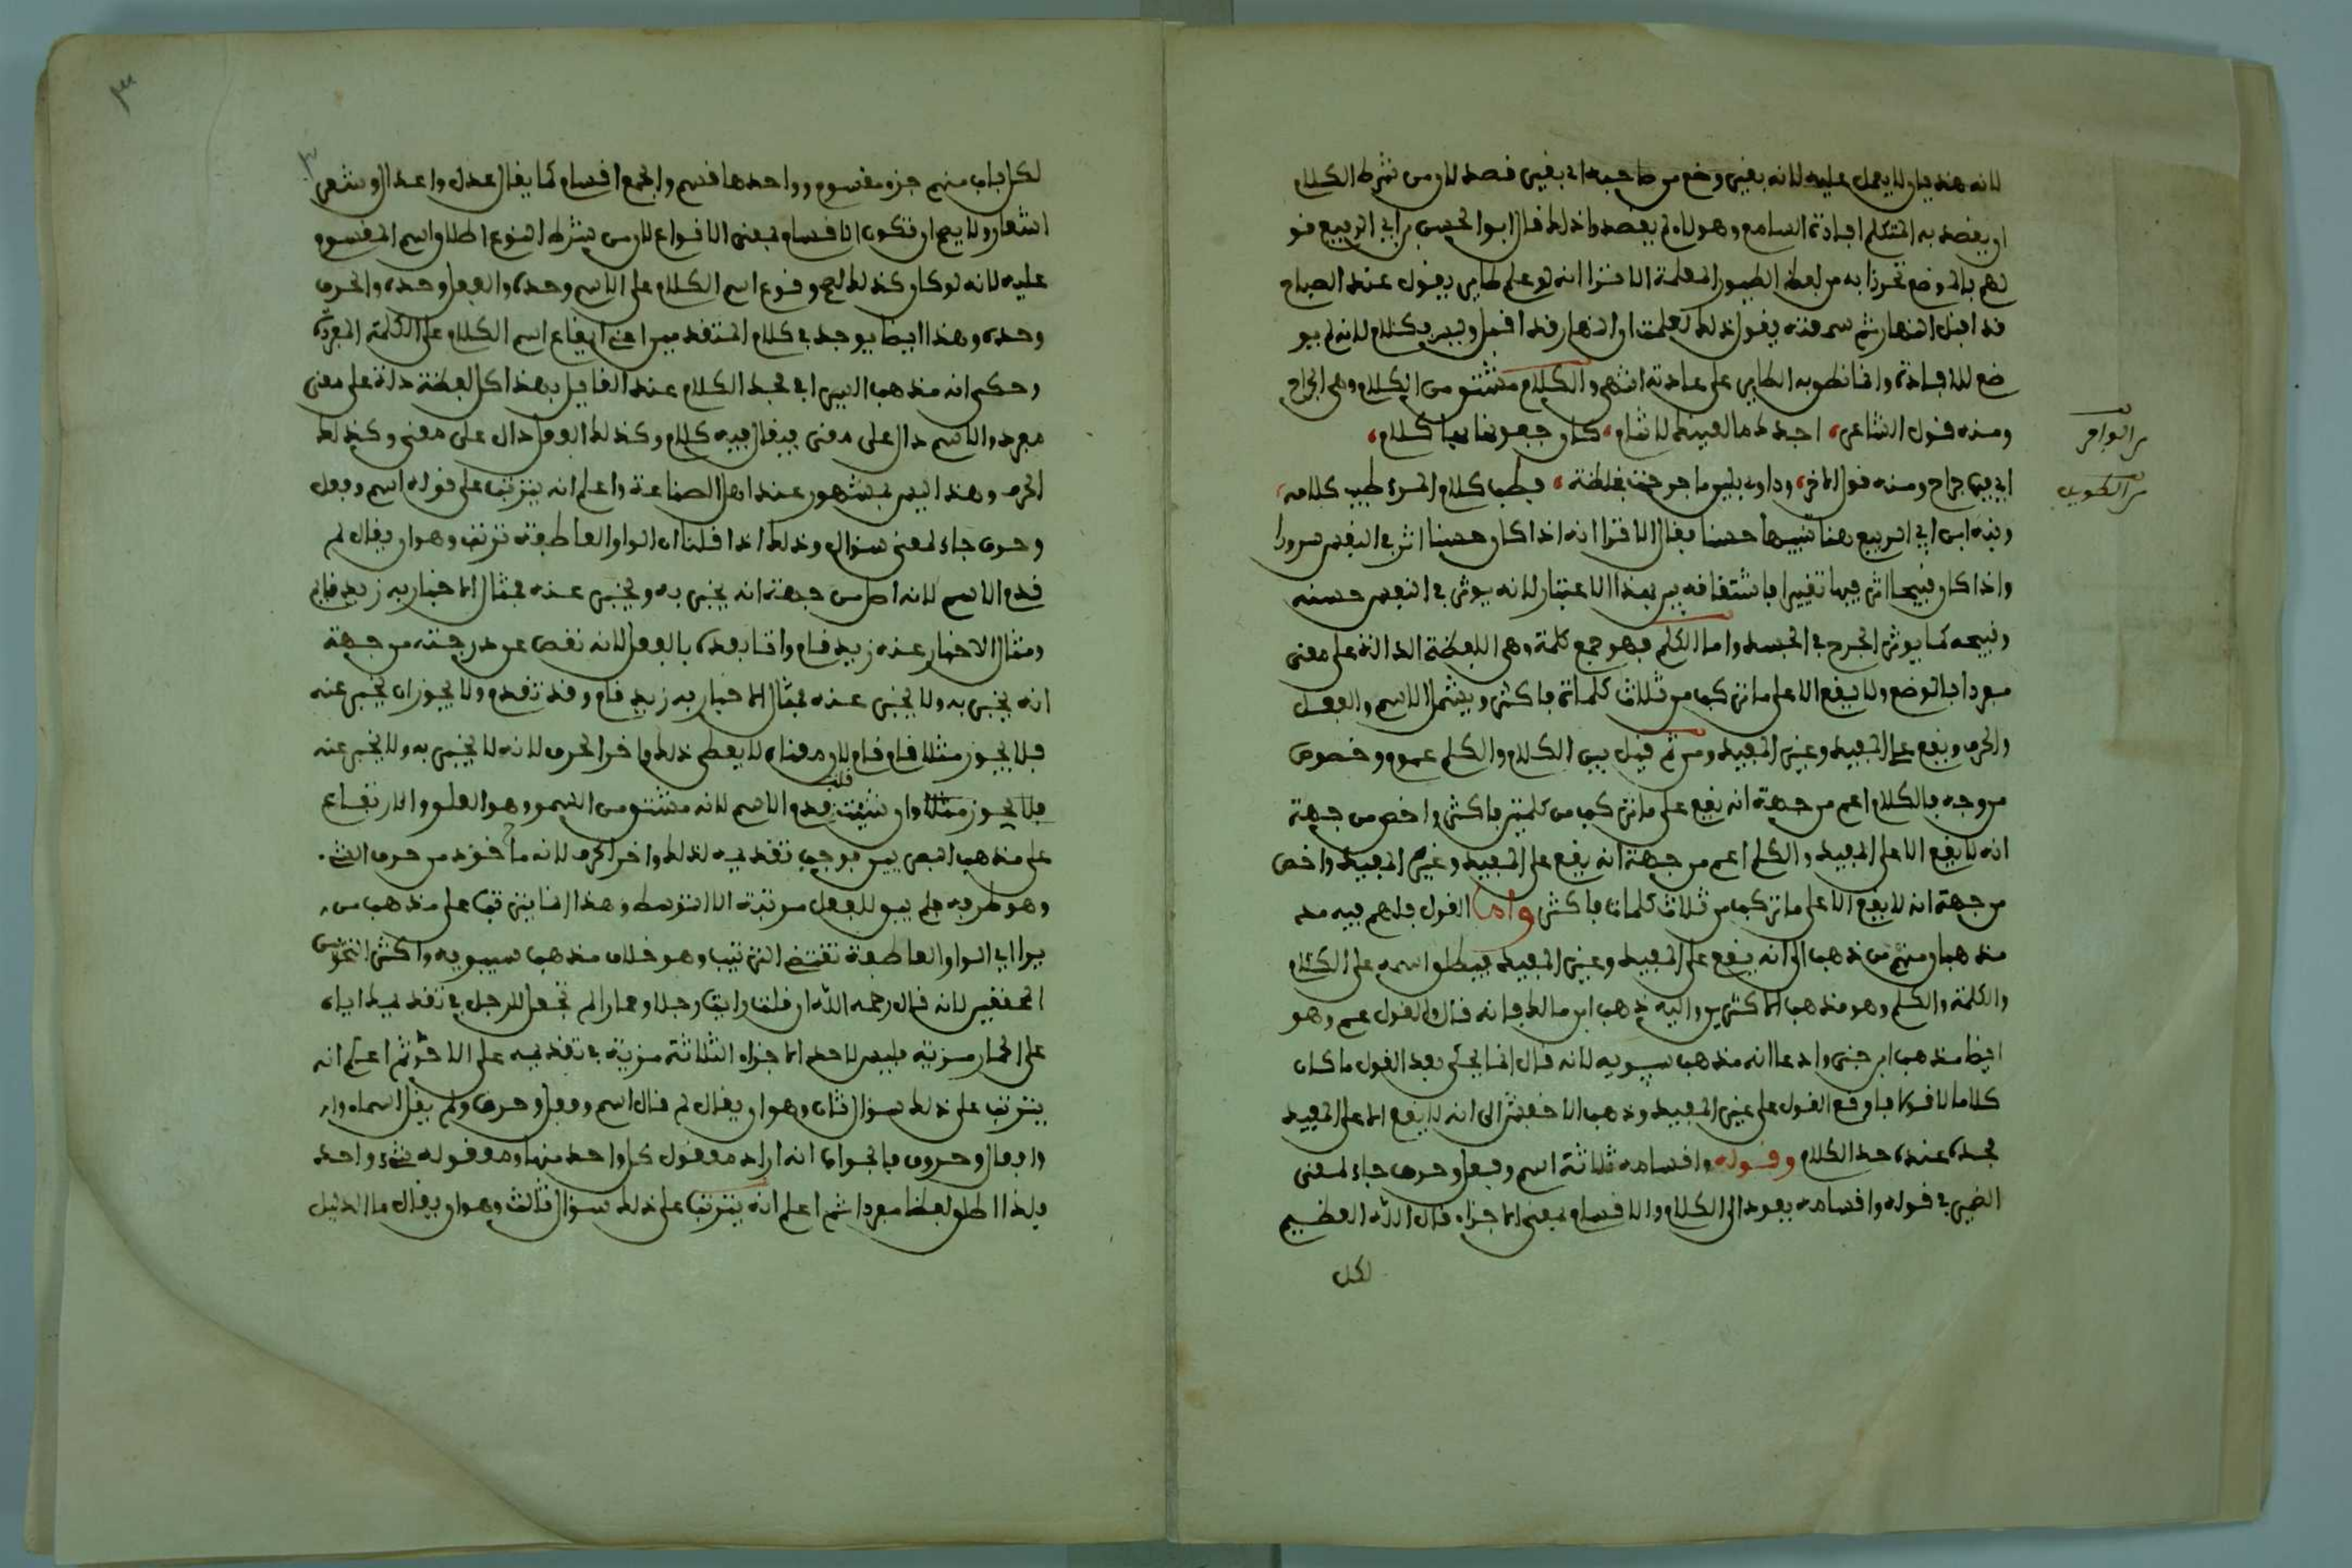 لانه هذيان لا يعمل عليه لانه بغير وضع من صاحبه اي بغير قصد لان من شرط الكلام
ان يقصد به المتكلم افادة السامع وهولاء لم يقصدوا ذلك قال ابو الحسين بن ابي الربيع قو
لهم بالوضع تحرزا به من لفظ الطيور المعلمة الا ترا انه لو علم طاير يقول عند الصباح
قد اقبل النهار ثم سمعته يقول ذلك لعلمت ان النهار قد اقبل وليس بكلام لانه لم يو
ضع للافادة وانما نطق به الطاير على عادته انتهى والكلام مشتق من الكلام وهي الجراح
ومنه قول الشاعر اجدك ما لعينك لا تنام كان جفونها فيها كلام
من الوافر
اي فيها جراح ومنه قول الاخر وداو بلين ما جرحت بغلظة فطب كلام المرء طيب كلامه
من الطويل
ونبه ابن ابي الربيع هنا تنبيها حسنا فقال الا ترا انه اذا كان حسنا اثر في النفس سرورا
واذا كان قبيحا اثر فيها تغييرا فاشتقاقه بين بهذا الاعتبار لانه يوثر في النفس حسنه
وقبيحه كما يوثر الجرح في الجسد واما الكلم فهو جمع كلمة وهي اللفظة الدالة على معنى
مفرد بالوضع ولا يقع الا على ما تركب من ثلاث كلمات فاكثر ويشمل الاسم والفعل
والحرف ويقع على المفيد وغير المفيد ومن ثم قيل بين الكلام والكلم عموم وخصوص
من وجه فالكلام اعم من جهة انه يقع على ما تركب من كلمتين فاكثر واخص من جهة
انه لا يقع الا على المفيد والكلم اعم من جهة انه يقع على المفيد وغير المفيد واخص
من جهة انه لا يقع الا على ما تركب من ثلاث كلمات فاكثر واما القول فلهم فيه مذ
مذهبان منهم من ذهب الى انه يقع على المفيد وغير المفيد فيطلق اسمه على الكلام
والكلمة والكلم وهو مذهب الاكثرين واليه ذهب ابن مالك فانه قال والقول عم وهو
ايضا مذهب ابن جني وادعا انه مذهب سيبويه لانه قال انما يحكى بعد القول ما كان
كلاما لا قولا فاوقع القول على غير المفيد وذهب الاخفش الى انه لا يقع الا على المفيد
فحده عنده حد الكلام وقوله واقسامه ثلاثة اسم وفعل وحرف جاء لمعنى
الضمير في قوله واقسامه يعود الى الكلام والاقسام بمعنى الاجزاء قال الله العظيم
لكل
لكل باب منهم جزء مقسوم وواحدها قسم والجمع اقسام كما يقال عدل واعدال وشعر
اشعار ولا يصح ان تكون الاقسام بمعنى الانواع لان من شرط النوع اطلاق اسم المقسوم
عليه لانه لو كان كذلك لصح وقوع اسم الكلام على الاسم وحده والفعل وحده والحرف
وحده وهذا ايضا يوجد في كلام المتقدمين اعني ايقاع اسم الكلام على الكلمة المفردة
وحكى انه مذهب السيرافي فحد الكلام عند القايل بهذا كل لفظة دلت على معنى
مفرد والاسم دال على معنى فيقال فيه كلام وكذلك الفعل دال على معنى وكذلك
الحرف وهذا ليس بمشهور عند اهل الصناعة واعلم انه يترتب على قوله اسم وفعل
وحرف جاء لمعنى سؤال وذلك اذا قلنا ان الواو العاطفة ترتب وهو ان يقال لم
قدم الاسم لانه اصل من جهة انه يخبر به ويخبر عنه فمثال الاخبار به زيد قايم
ومثال الاخبار عنه زيد قام واتا بعده بالفعل لانه نقص عن درجته من جهة
انه يخبر به ولا يخبر عنه فمثال الاخبار به زيد قام وقد تقدم ولا يجوز ان يخبر عنه
فلا يجوز مثلا قام قام لان معناه لا يعطي ذلك واخر الحرف لانه لا يخبر به ولا يخبر عنه
فلا يجوز مثلا وان شئت قلت قدم الاسم لانه مشتق من السمو وهو العلو والارتفاع
على مذهب البصريين فوجب تقديمه لذلك واخر الحرف لانه ماخوذ من حرف الشيء
وهو طرفه فلم يبق للفعل مرتبة الا التوسط وهذا انما يترتب على مذهب من
يرا ان الواو العاطفة تقتضي الترتيب وهو خلاف مذهب سيبويه واكثر النحويين
المحققين لانه قال رحمه الله ان قلت رايت رجلا وحمارا لم تجعل للرجل في تقديمك اياه
على الحمار مزية فليس لاحد الاجزاء الثلاثة مزية في تقديمه على الاخر ثم اعلم انه
يترتب على ذلك سؤال ثان وهو ان يقال لم قال اسم وفعل وحرف ولم يقل اسماء وا
وافعال وحروف فالجواب انه اراد معقول كل واحد منها ومعقوله شيء واحد
فلذا اطلق لفظا مفردا ثم اعلم انه يترتب على ذلك سؤال ثالث وهو ان يقال ما الدليل